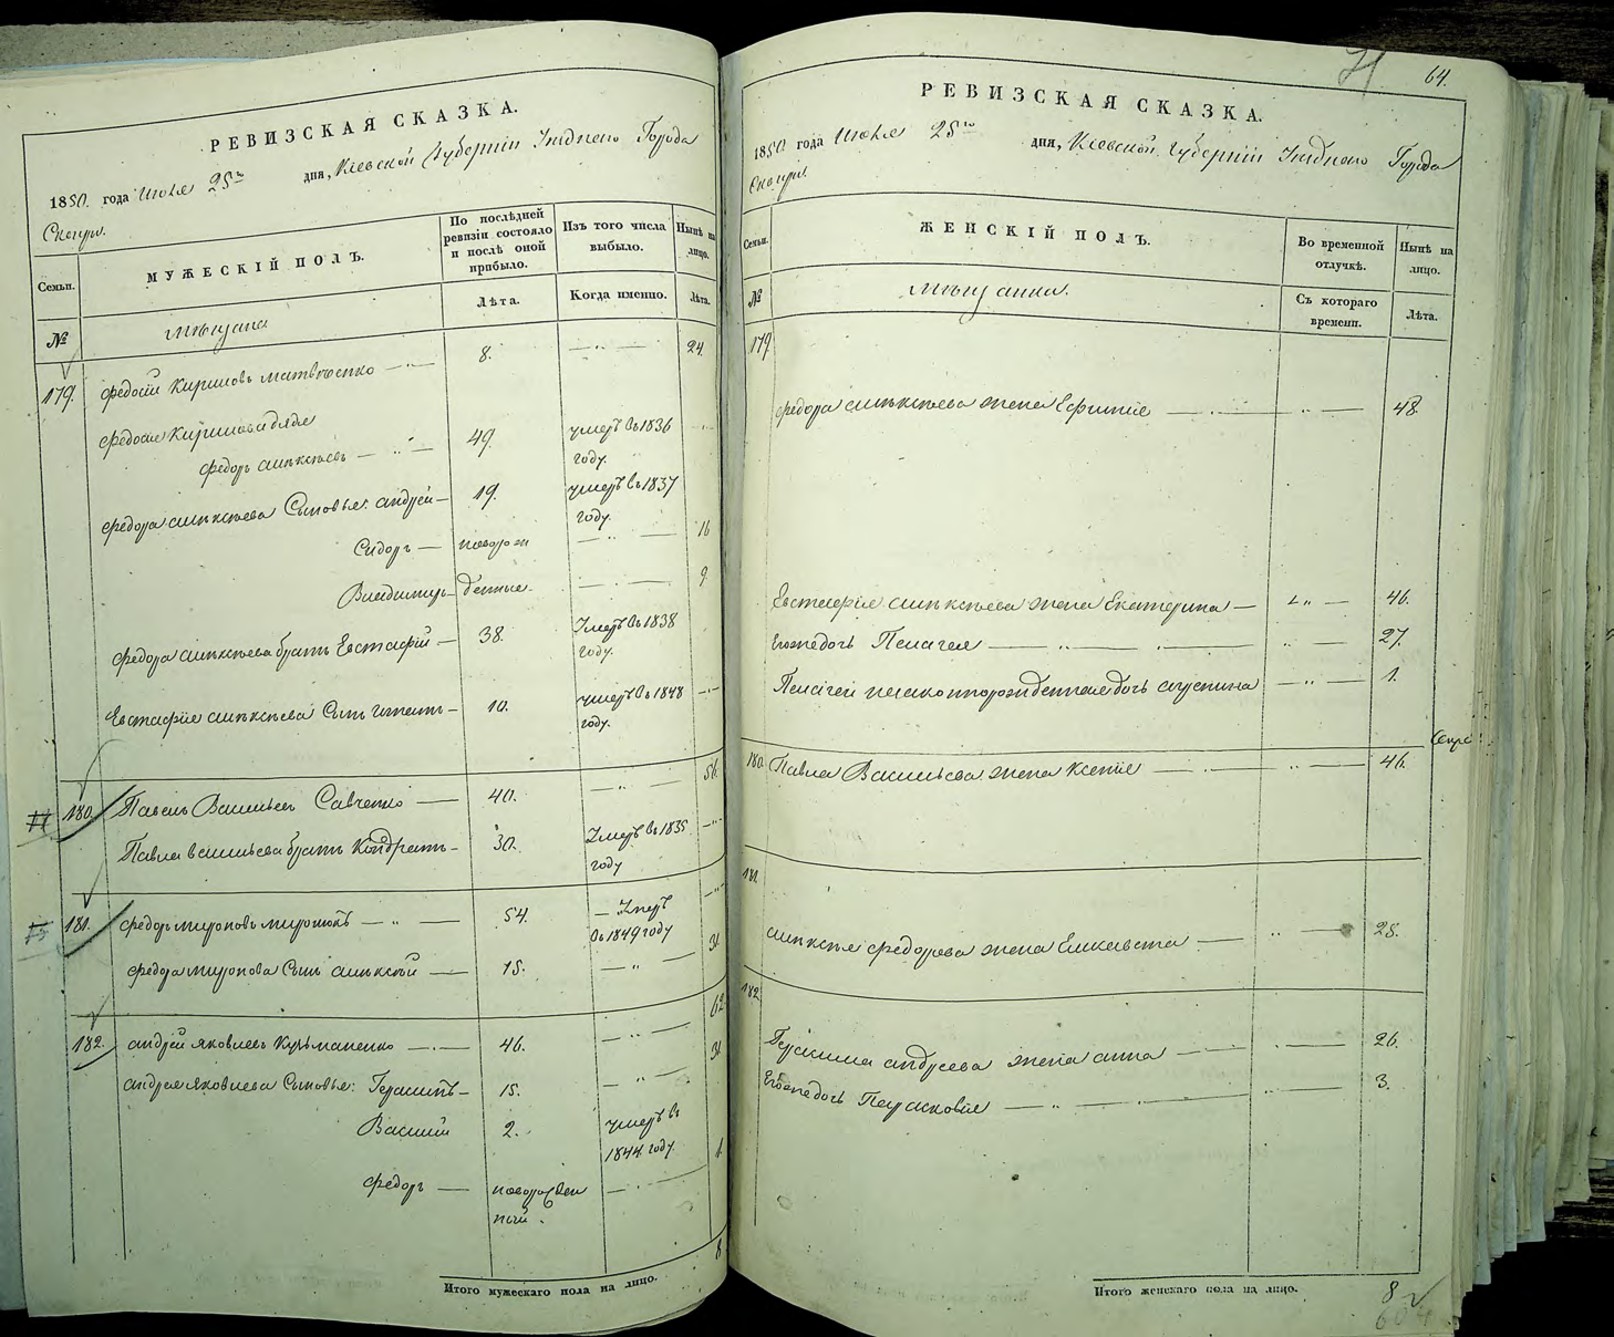 РЕВИЗСКАЯ СКАЗКА.
1850 года Июля 25го дня, Кіевской Губерніи Уѣзднаго Города
Сквиры.
Семьи.
МУЖЕСКІЙ ПОЛЪ.
По послѣдней ревизіи состояло и послѣ оной прибыло.
Изъ того числа выбыло.
Нынѣ на лицо.
№
мѣщане
Лѣта.
Когда именно.
Лѣта.
179. Федосій Кириловъ Матвѣенко — 8. — " — 24.
Федосія Кирилова дядя
Федоръ Алексѣевъ — " — 49. умеръ въ 1836 году.
Федора Алексѣева Сыновья: Андрей — 19. умеръ въ 1837 году.
Сидоръ — новорож — " — 16
Владимиръ — денные — 9.
Федора Алексѣева братъ Евстафій — 38. Умеръ въ 1838 году.
Евстафія Алексѣева Сынъ Игнатъ — 10. умеръ въ 1848 году. — " —
180. Павелъ Васильевъ Савченко — 40. — " — 56.
Павла Васильева братъ Кондратъ — 30. Умеръ въ 1835 году — " —
181. Федоръ Мироновъ Миронюкъ — " — 54. — Умеръ въ 1849 году — " —
Федора Миронова Сынъ Алексѣй — 15. — " — 31
182. Андрей Яковлевъ Кульманенко — 46. — " — 62
Андрея Яковлева Сыновья: Герасимъ — 15. — " — 31
Василій 2. умеръ въ 1844 году.
Федоръ — новорожден ный. — 1.
8
Итого мужескаго пола на лицо.
64.
РЕВИЗСКАЯ СКАЗКА.
1850 года Июля 25го дня, Кіевской Губерніи Уѣзднаго Города
Сквиры.
Семьи.
ЖЕНСКІЙ ПОЛЪ.
Во временной отлучкѣ.
Нынѣ на лицо.
№
мѣщанки.
Съ котораго времени.
Лѣта.
179
Федора Алексѣева жена Ефимія — " — 48.
Евстафія Алексѣева жена Екатерина — " — 46.
Егоже дочь Пелагея — " — 27.
Пелагеи незаконнорожденная дочь Агрепина — " — 1.
180. Павла Васильева жена Ксенія — " — 46.
181.
Алексѣя Федорова жена Елисавета — " — 28.
182
Герасима Андреева жена Анна — 26.
Егоже дочь Парасковія — " — 3.
Итого женскаго пола на лицо. 8